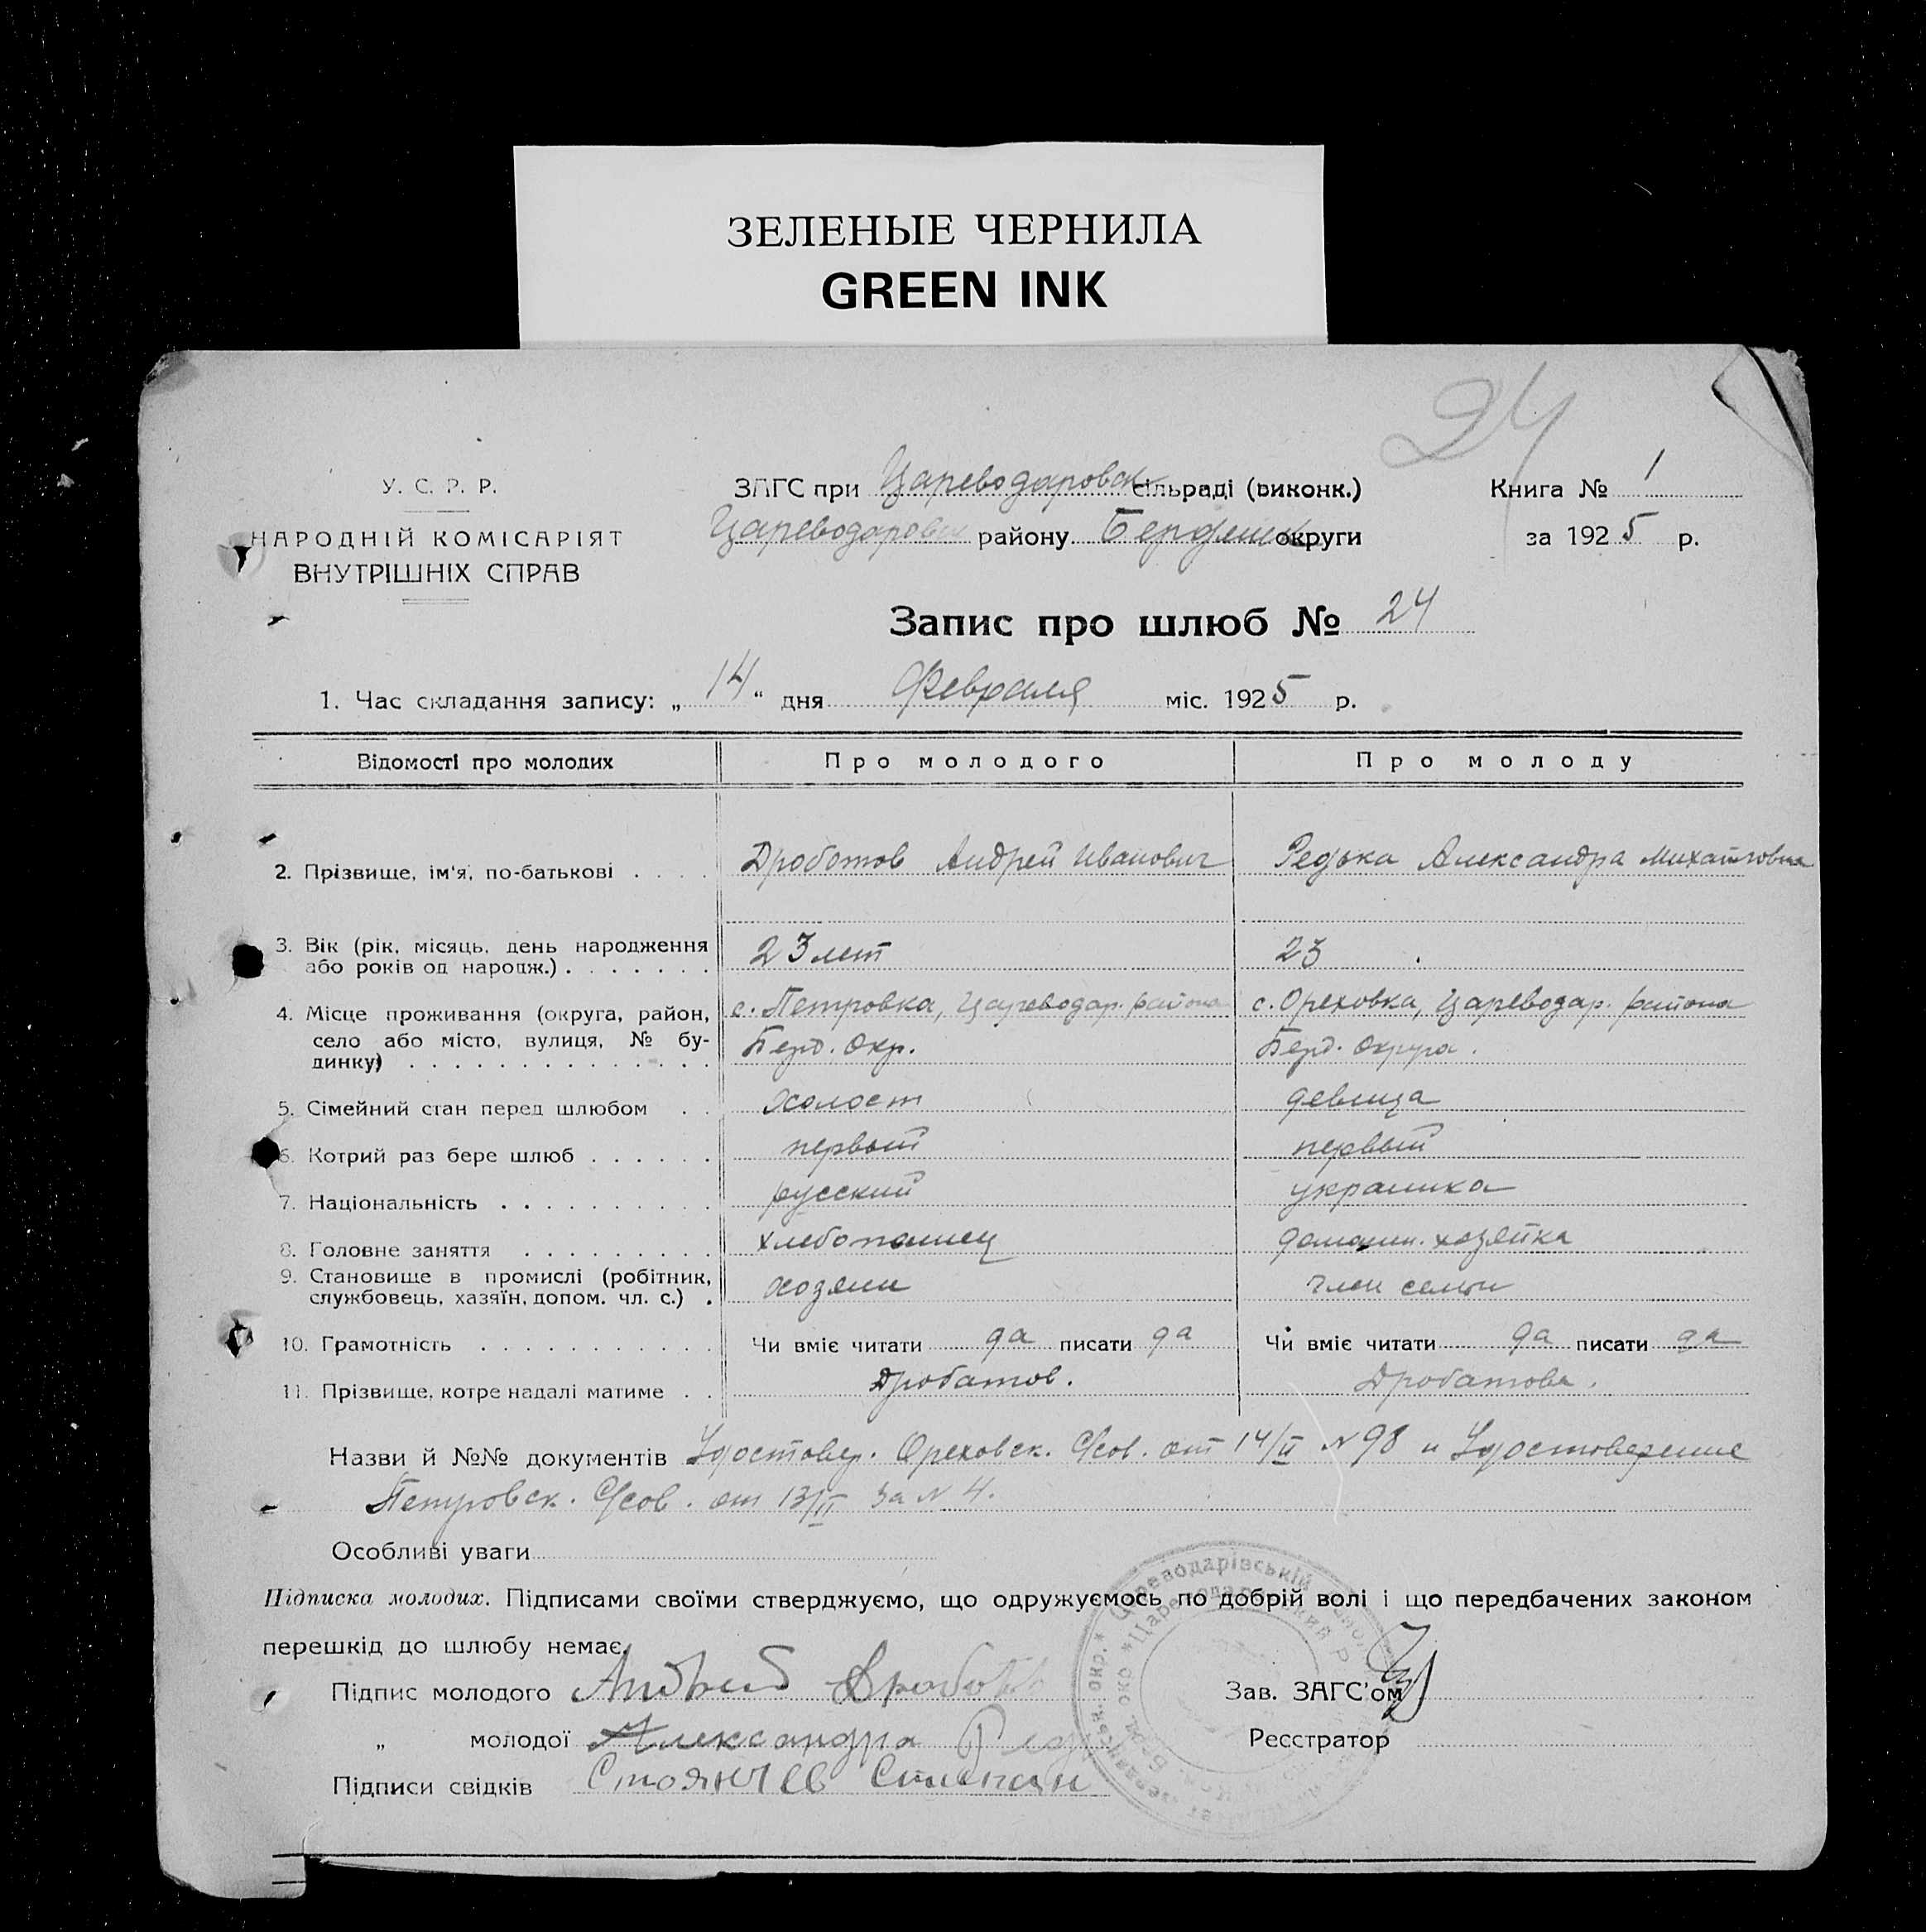 ЗЕЛЕНЫЕ ЧЕРНИЛА
GREEN INK
24
У. С. Р. Р.
НАРОДНІЙ КОМІСАРІЯТ
ВНУТРІШНІХ СПРАВ
ЗАГС при Цареводаровск сільраді (виконк.)
Цареводаровск району Бердянск округи
Книга № 1
за 1925 р.
Запис про шлюб № 24
1. Час складання запису: „14“ дня Февраля міс. 1925 р.
Відомості про молодих Про молодого Про молоду
2. Прізвище, ім'я, по-батькові . . . . Дроботов Андрей Иванович Редька Александра Михайловна
3. Вік (рік, місяць, день народження
або років од народж.) . . . . . . . 23 лет 23
4. Місце проживання (округа, район, с. Петровка, Цареводар. района с. Ореховка, Цареводар. района
село або місто, вулиця, № бу- Берд. Окр. Берд. Округа.
динку) . . . . . . . . . . . . . .
5. Сімейний стан перед шлюбом . . холост девица
6. Котрий раз бере шлюб . . . . . . первый первый
7. Національність . . . . . . . . . . русский украинка
8. Головне заняття . . . . . . . . . хлебопашец домашн. хозяйка
9. Становище в промислі (робітник,
службовець, хазяїн, допом. чл. с.) . хозяин член семьи
10. Грамотність . . . . . . . . . . . Чи вміє читати да писати да Чи вміє читати да писати да
11. Прізвище, котре надалі матиме . . Дробатов. Дробатова.
Назви й №№ документів Удостовер. Ореховск. С/сов. от 14/II №98 и Удостоверение
Петровск. С/сов. от 13/II за № 4.
Особливі уваги
Підписка молодих. Підписами своїми стверджуємо, що одружуємось по добрій волі і що передбачених законом
перешкід до шлюбу немає.
Підпис молодого Андрей Дробот
Зав. ЗАГС'ом
„ молодої Александра Ред
Реєстратор
Підписи свідків Стоянчев Степан